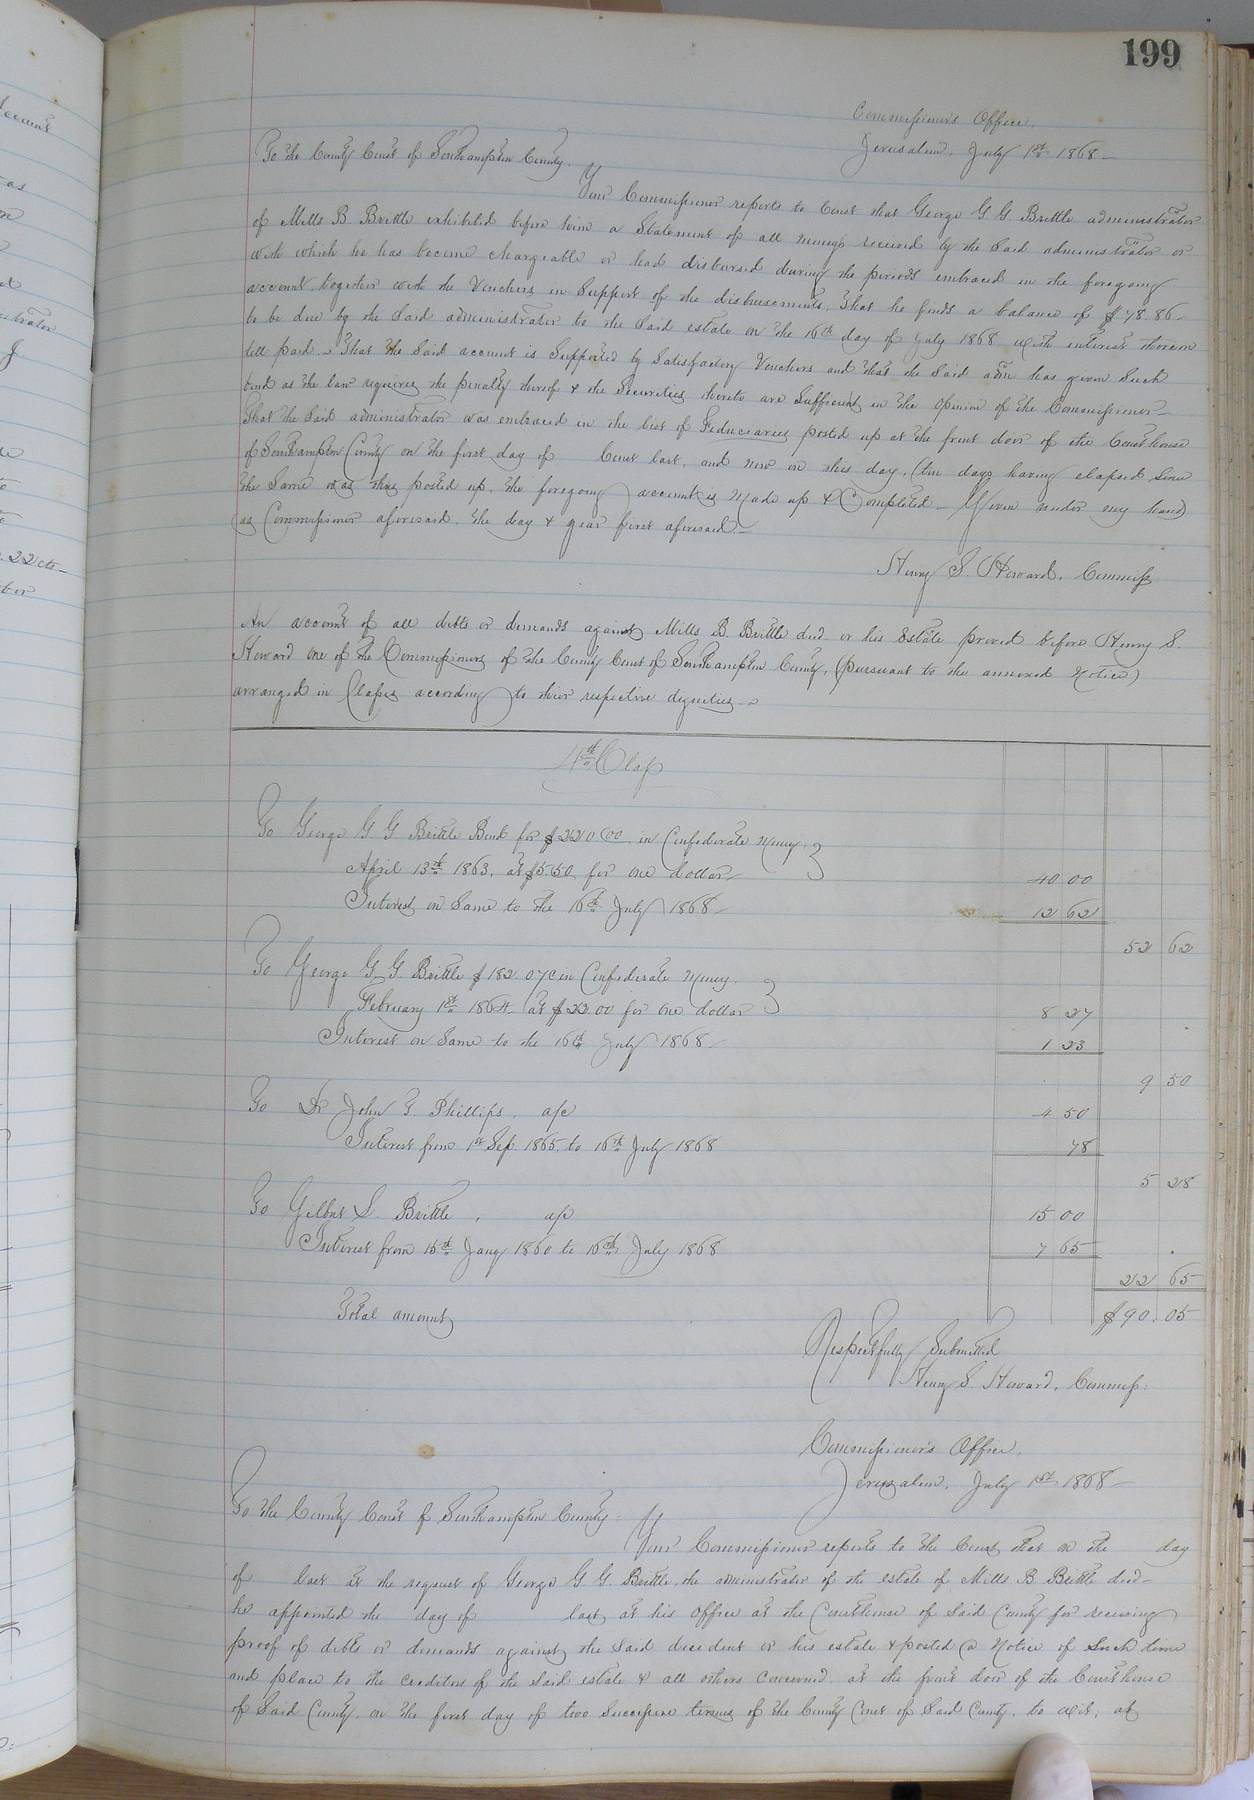 199
Commissioner's Office.
Jerusalem, July 1st 1868 -
To the County Court of Southampton County.
Your Commissioner reports to Court that George G G Brittle administrator
of Mills B. Brittle exhibited before him a Statement of all moneys received by the said administrator or
with which he has become chargeable or had disbursed during the periods embraced in the foregoing
account, together with the Vouchers in Support of the disbursements, that he finds a balance of $78 86 -
to be due by the Said administrator to the Said estate on the 16th day of July 1868 with interest thereon
till paid. - That the Said account is Supported by Satisfactory Vouchers and that the Said adm has given Such
bond as the law requires the penalty thereof & the Securities thereto are Sufficient in the opinion of the Commissioner -
That the Said administrator was embraced in the list of Feduciaries posted up at the front door of the Courthouse
of Southampton County on the first day of Court last, and now on this day, (ten days having elapsed Since
the Same was thus posted up, the foregoing account is Made up & Completed - Given under my hand
as Commissioner aforesaid, the day & year first aforesaid. -
Henry S. Howard, Commiss
An account of all debts or demands against Mills B. Brittle decd or his Estate proved before Henry S.
Howard one of the Commissioners of the County Court of Southampton County, (pursuant to the annexed Notice)
arranged in Classes according to their respective dignities. -
4th Class
To George G G Brittle Bond for $220.00 in Confederate Money
April 13th 1863, at $5.50 for one dollar - 40 00
Interest on Same to the 16th July 1868 - 12 62
52 62
To George G G Brittle $182 07c in Confederate Money
February 1st 1864 at $22 00 for one dollar 8 27
Interest on Same to the 16th July 1868 - 1 23
9 50
To Dr John T Phillips a/c 4 50
Interest from 1st Sep. 1865, to 16th July 1868 78
5 28
To Gilbert S. Brittle, a/c 15 00
Interest from 15th Jany 1860 to 16th July 1868 7 65
22 65
Total amount $90.05
Respectfully Submitted
Henry S. Howard, Commiss:
Commissioner's Office,
Jerusalem, July 1st 1868 -
To the County Court of Southampton County:
Your Commissioner reports to the Court that on the day
of last at the request of George G G. Brittle, the administrator of the estate of Mills B Brittle decd -
he appointed the day of last, at his Office at the Courthouse of Said County for receiving
proof of debts or demands against the Said decedent or his estate & posted a Notice of Such time
and place to the creditors of the Said estate & all others concerned at the front door of the Courthouse
of Said County, on the first day of two Successive terms of the County Court of Said County, to wit; at